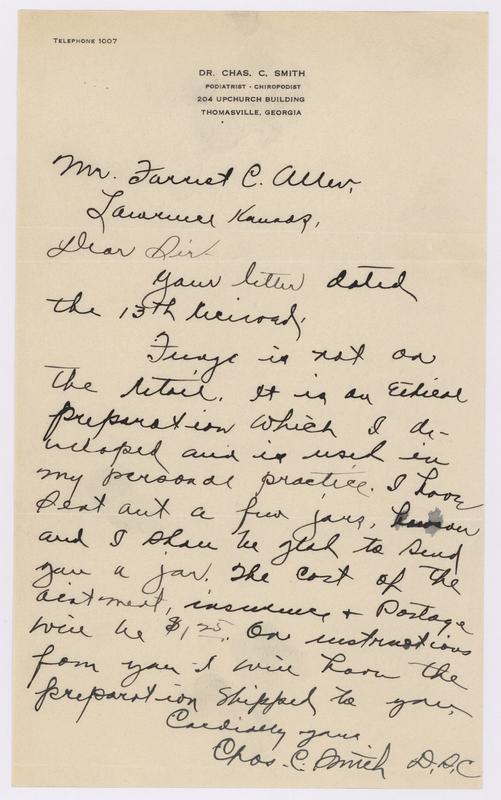 TELEPHONE 1007
DR. CHAS. C. SMITH
PODIATRIST - CHIROPODIST
204 UPCHURCH BUILDING
THOMASVILLE, GEORGIA
Mr. Forrest C. Allen,
Lawrence Kansas,
Dear Sir-
Your letter dated
the 13th received,
is not on
the retail. It is an Ethical
preparation which I de-
veloped and is used in
my personal practice. I have
sent out a few jars,
and I shall be glad to send
you a jar. The cost of the
ointment, insurance + Postage
will be $1,25. On instructions
from you I will have the
preparation shipped to you,
Cordially yours
Chas. C. Smith D.S.C